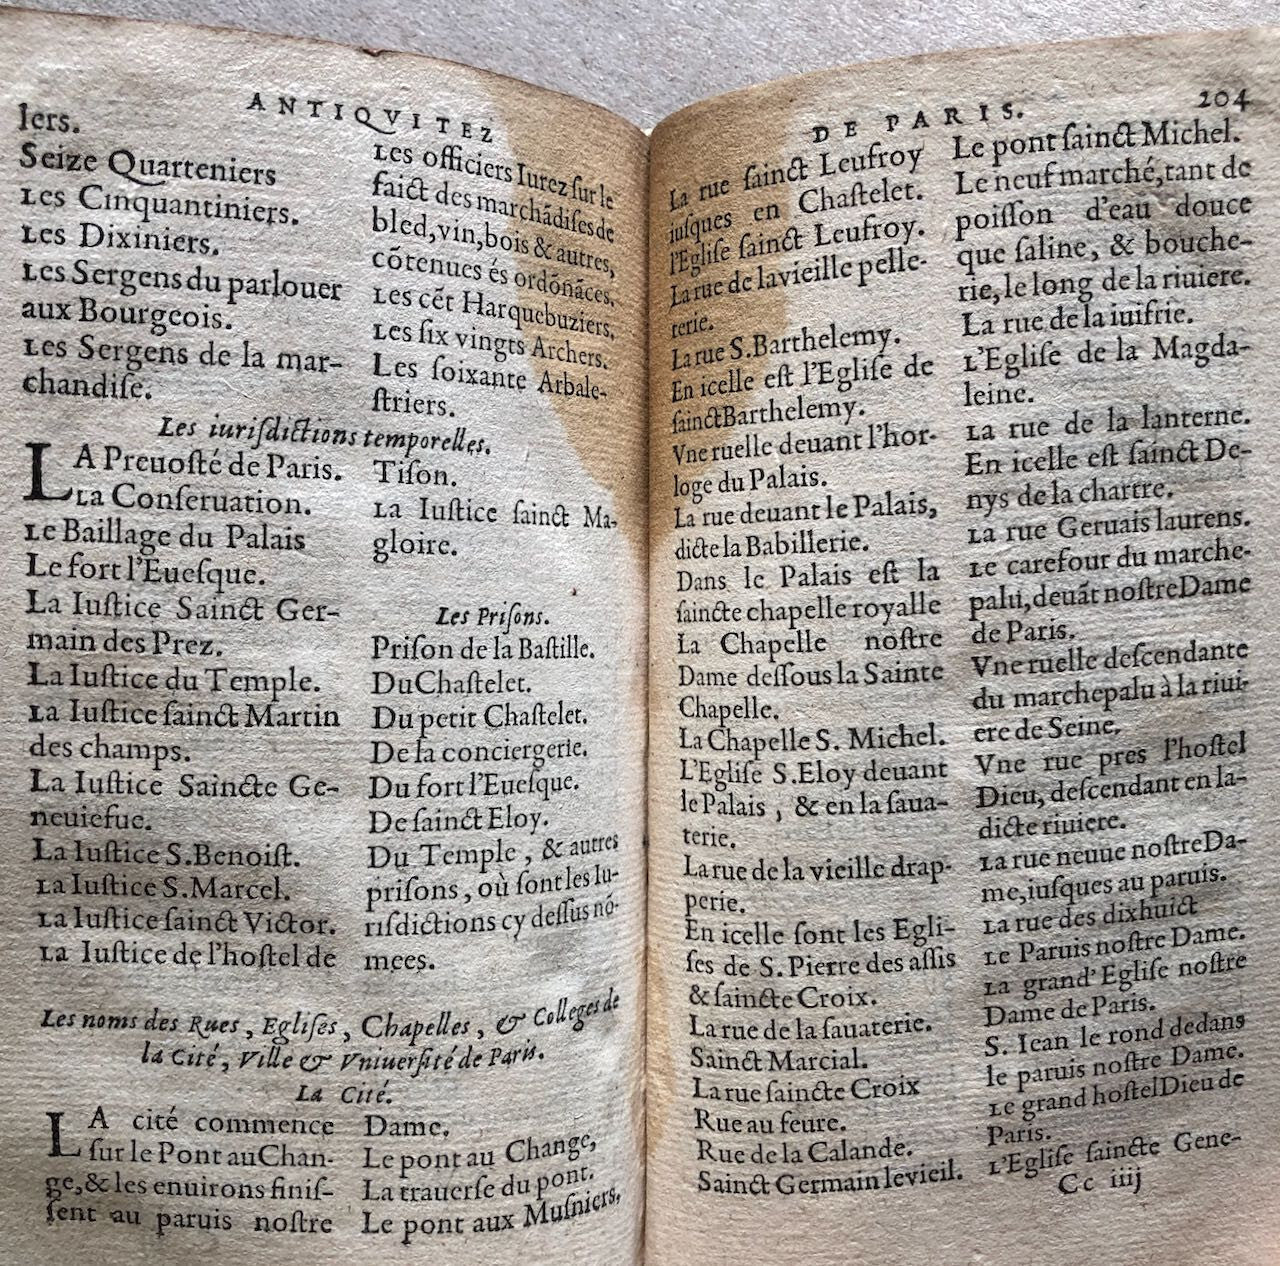 ANTIQVITEZ
lers.
Seize Quarteniers
Les Cinquantiniers.
Les Dixiniers.
Les Sergens du parlouer
aux Bourgeois.
Les Sergens de la mar-
chandiſe.
Les officiers Iurez ſur le
faict des marchādiſes de
bled, vin, bois & autres,
cōtenues és ordōnāces.
Les cēt Harquebuziers.
Les ſix vingts Archers.
Les ſoixante Arbale-
ſtriers.
Les iuriſdictions temporelles.
LA Preuoſté de Paris.
La Conſeruation.
Le Baillage du Palais
Le fort l'Eueſque.
La Iuſtice Sainct Ger-
main des Prez.
La Iuſtice du Temple.
La Iuſtice ſainct Martin
des champs.
La Iuſtice Saincte Ge-
neuiefue.
La Iuſtice S. Benoiſt.
La Iuſtice S. Marcel.
La Iuſtice ſainct Victor.
La Iuſtice de l'hoſtel de
Tiſon.
La Iuſtice ſainct Ma-
gloire.
Les Priſons.
Priſon de la Baſtille.
Du Chaſtelet.
Du petit Chaſtelet.
De la conciergerie.
Du fort l'Eueſque.
De ſainct Eloy.
Du Temple, & autres
priſons, où ſont les Iu-
riſdictions cy deſſus nō-
mees.
Les noms des Rues, Egliſes, Chapelles, & Colleges de
la Cité, Ville & Vniuerſité de Paris.
La Cité.
LA cité commence
ſur le Pont au Chan-
ge, & les enuirons finiſ-
ſent au paruis noſtre
Dame.
Le pont au Change,
La trauerſe du pont.
Le pont aux Muſniers,
DE PARIS. 204
La rue ſainct Leufroy
iuſques en Chaſtelet.
l'Egliſe ſainct Leufroy.
La rue de la vieille pelle-
terie.
La rue S. Barthelemy.
En icelle eſt l'Egliſe de
ſainct Barthelemy.
Vne ruelle deuant l'hor-
loge du Palais.
La rue deuant le Palais,
dicte la Babillerie.
Dans le Palais eſt la
ſaincte chapelle royalle
La Chapelle noſtre
Dame deſſous la Sainte
Chapelle.
La Chapelle S. Michel.
L'Egliſe S. Eloy deuant
le Palais, & en la ſaua-
terie.
La rue de la vieille drap-
perie.
En icelle ſont les Egli-
ſes de S. Pierre des aſſis
& ſaincte Croix.
La rue de la ſauaterie.
Sainct Marcial.
La rue ſaincte Croix
Rue au feure.
Rue de la Calande.
Sainct Germain le vieil.
Le pont ſainct Michel.
Le neuf marché, tant de
poiſſon d'eau douce
que ſaline, & bouche-
rie, le long de la riuiere.
La rue de la iuifrie.
L'Egliſe de la Magda-
leine.
La rue de la lanterne.
En icelle eſt ſainct De-
nys de la chartre.
La rue Geruais laurens.
Le carefour du marche-
palu, deuāt noſtre Dame
de Paris.
Vne ruelle deſcendante
du marchepalu à la riui-
ere de Seine.
Vne rue pres l'hoſtel
Dieu, deſcendant en la-
dicte riuiere.
La rue neuue noſtre Da-
me, iuſques au paruis.
La rue des dixhuict
Le Paruis noſtre Dame.
La grand' Egliſe noſtre
Dame de Paris.
S. Iean le rond dedans
le paruis noſtre Dame.
Le grand hoſtel Dieu de
Paris.
L'Egliſe ſaincte Gene-
Cc iiij